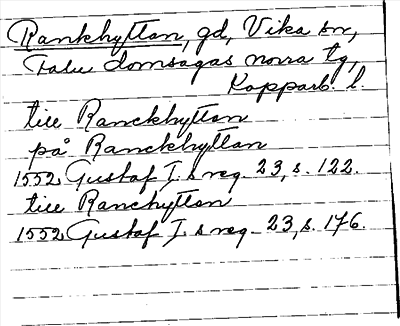 Rankhyttan, gd, Vika sn,
Falu domsagas norra tg,
Kopparb. l.
till Ranckhyttan
på Ranckhyttan
1552 Gustaf I.s reg. 23, s. 122.
till Ranchyttan
1552 Gustaf I.s reg. 23, s. 176.